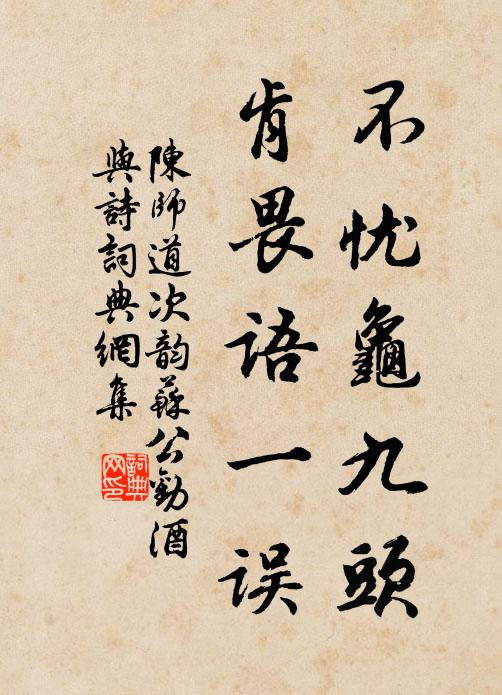 不忧龜九頭
肯畏语一误
陳師道次韵蘇公勸酒
與詩詞典網集
詞典
网印